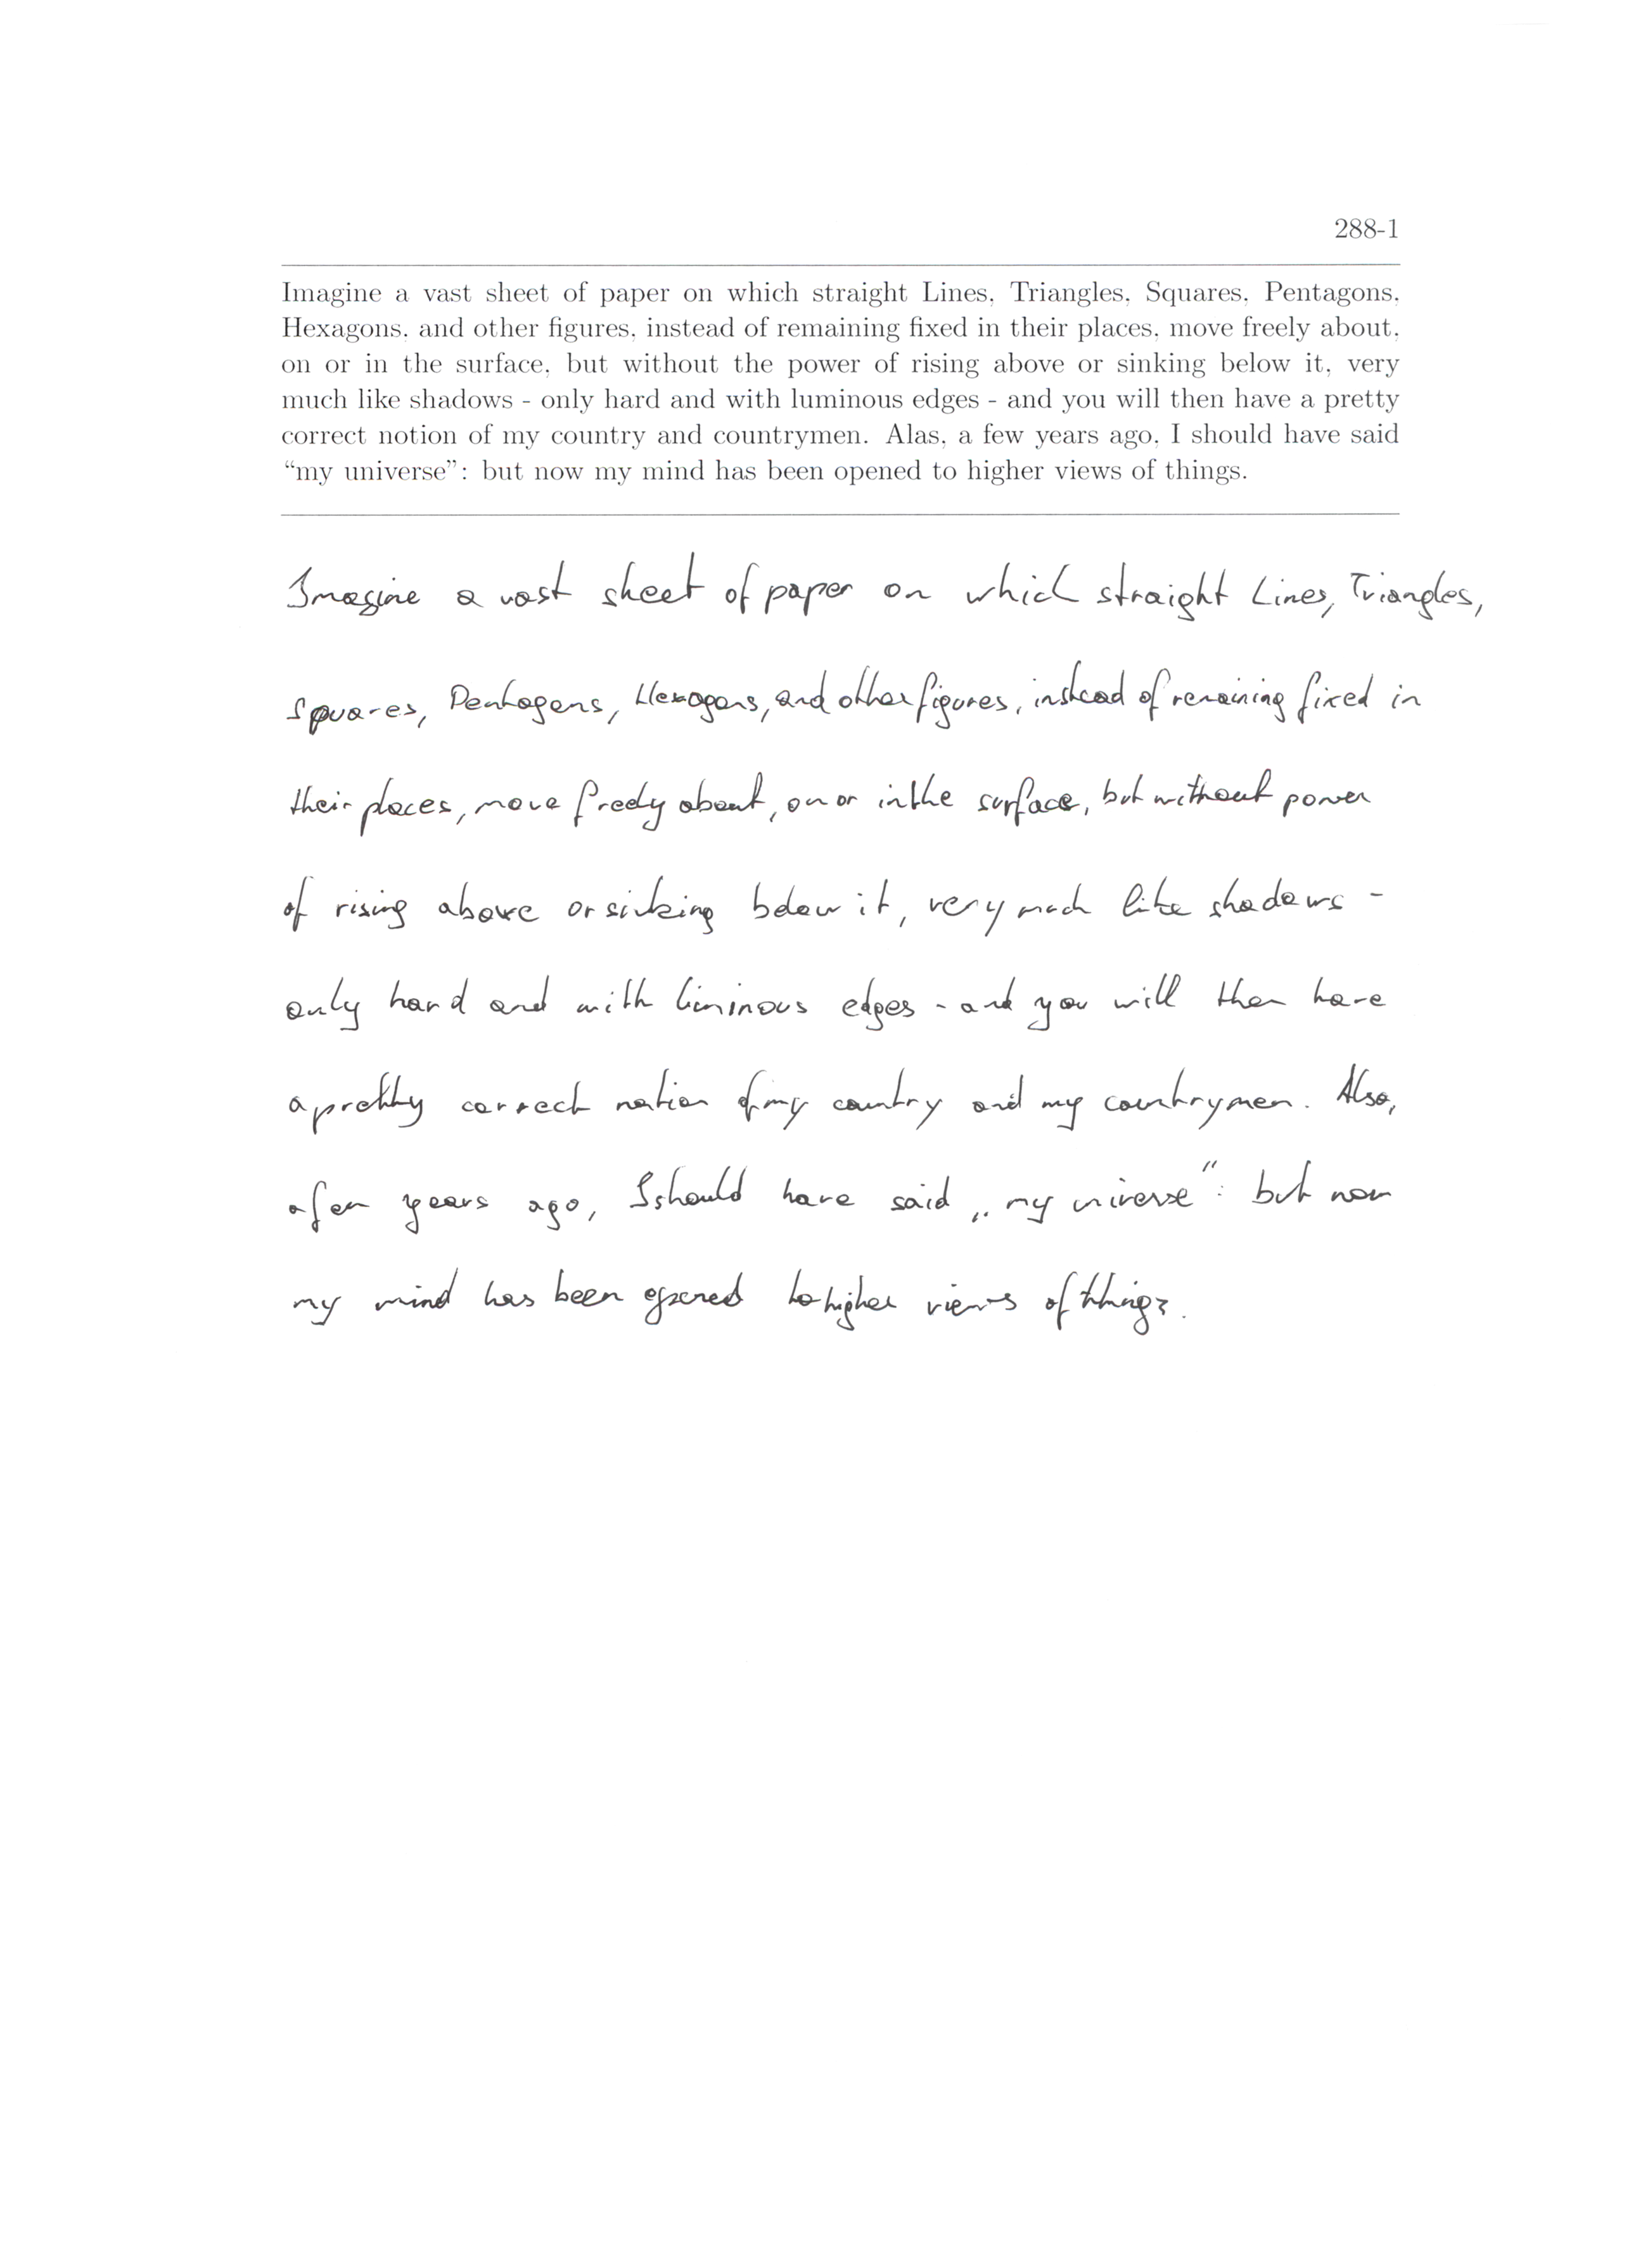 288-1
Imagine a vast sheet of paper on which straight Lines, Triangles, Squares, Pentagons,
Hexagons, and other figures, instead of remaining fixed in their places, move freely about,
on or in the surface, but without the power of rising above or sinking below it, very
much like shadows - only hard and with luminous edges - and you will then have a pretty
correct notion of my country and countrymen. Alas, a few years ago, I should have said
“my universe”: but now my mind has been opened to higher views of things.
Imagine a vast sheet of paper on which straight Lines, Triangles,
Squares, Pentagons, Hexagons, and other figures, instead of remaining fixed in
their places, move freely about, on or in the surface, but without power
of rising above or sinking below it, very much like shadows -
only hard and with liminous edges - and you will then have
a pretty correct notion of my country and my countrymen. Alas,
a few years ago, I should have said „my universe“: but now
my mind has been opened to higher views of things.